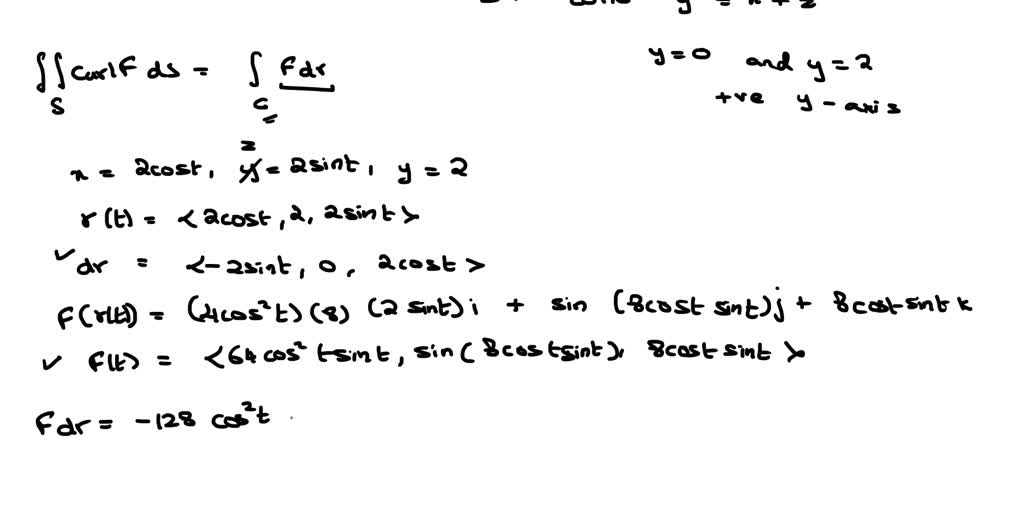 cone y = x + z
∬ curl F ds = ∫ F dr
S C
y = 0 and y = 2
+ve y - axis
z
x = 2cost, y = 2sint, y = 2
r(t) = <2cost, 2, 2sint>
✓ dr = <-2sint, 0, 2cost>
F(r(t)) = (4cos²t)(8)(2sint)i + sin(8cost sint)j + 8cost sint k
✓ F(t) = <64cos²t sint, sin(8cost sint), 8cost sint>
F dr = -128 cos²t